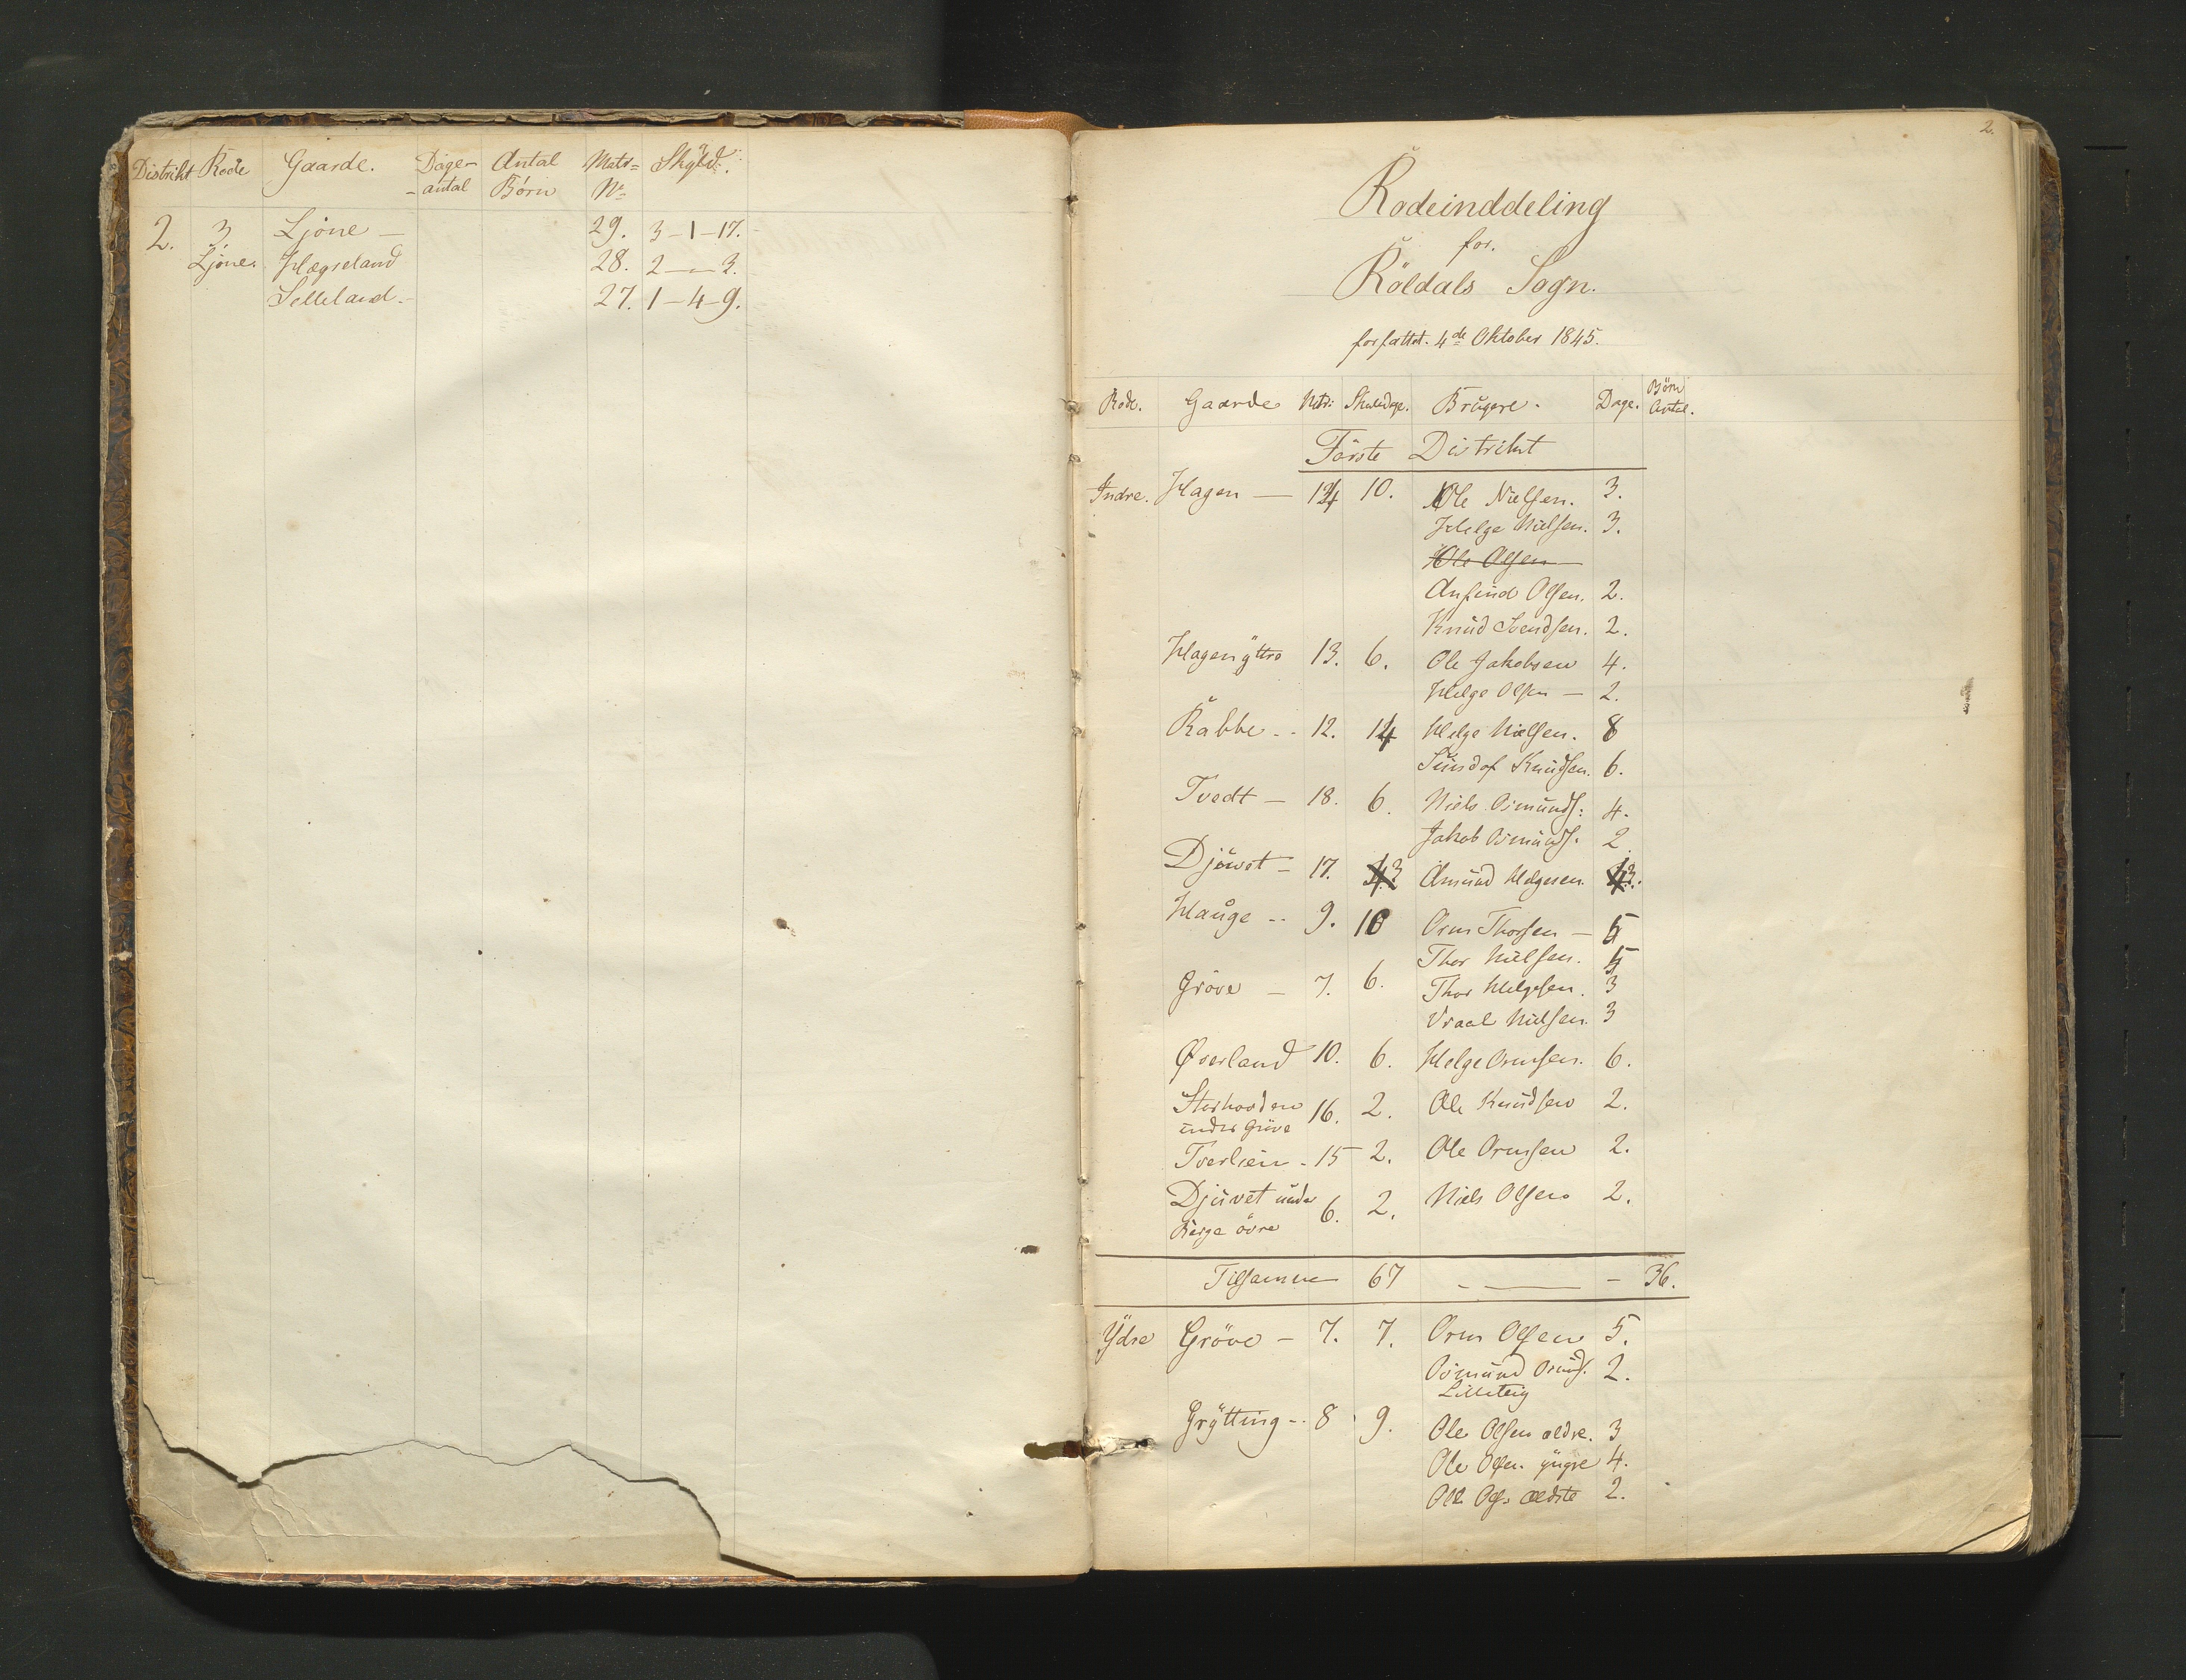 Distrikt Rode Gaarde. Dage- Antal Matr= Skyld.
-antal Børn No
2. 3 Ljone — 29. 3-1-17.
Ljone. Hægreland 28. 2-"-3.
Selleland.- 27. 1-4-9.
2.
Rodeinddeling
for.
Röldals Sogn.
forfattet. 4de Oktober 1845.
Rode. Gaarde Mtr: Skoledage. Brugere. Dage. Börn
Antal.
Förste Distrikt
Indre. Hagen — 14 10. Ole Nielsen. 3.
Helge Nielsen. 3.
Ole Olsen
Anfind Olsen. 2.
Knud Svendsen. 2.
Hagen yttre 13. 6. Ole Jakobsen 4.
Helge Olsen — 2.
Rabbe -- 12. 14 Helge Nielsen. 8
Knudsen. 6.
Tvedt — 18. 6. Niels Osmunds: 4.
Jakob Osmunds. 2.
Djuvet - 17. 3 Amund Helgesen. 3.
Hauge -- 9. 10 Orm Thorsen — 5
Thor Nielsen. 5
Gröve — 7. 6. Thor Helgesen. 3
Vraal Nielsen. 3
Øverland 10. 6. Helge Ormsen. 6.
Storhovden 16. 2. Ole Knudsen 2.
under Gröve
Tverlien - 15 2. Ole Ormsen 2.
Djuvet under 6. 2. Niels Olsen 2.
Berge övre
Tilsammen 67 - — - 36.
Ydre Gröve - 7. 7. Orm Olsen 5.
Osmund Orms. 2.
Lilleteig
Grytting -- 8 9. Ole Olsen ældre. 3
Ole Olsen yngre 4.
Ole Ols. ældste 2.